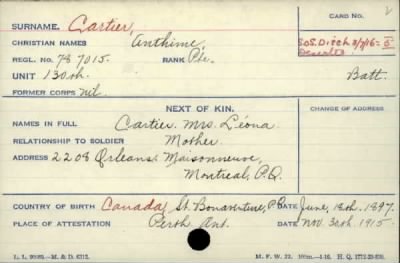 SURNAME. Cartier,
CARD No.
CHRISTIAN NAMES Anthime,
S.O.S. Disch 3/7/16=5
Deserter
REGL. No. 787015. RANK Pte.
UNIT 130th. Batt.
FORMER CORPS nil.
NEXT OF KIN.
CHANGE OF ADDRESS
NAMES IN FULL Cartier. Mrs. Léona
RELATIONSHIP TO SOLDIER Mother.
ADDRESS 2208 Orleans. Maisonneuve,
Montreal, P.Q.
COUNTRY OF BIRTH Canada, St. Bonaventure, P.Q. DATE June, 18th. 1897.
PLACE OF ATTESTATION Perth Ont. DATE Nov. 30th. 1915.
M. F. W. 22.